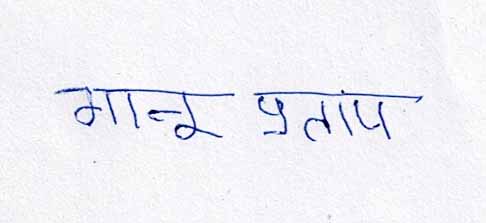 मानू प्रताप